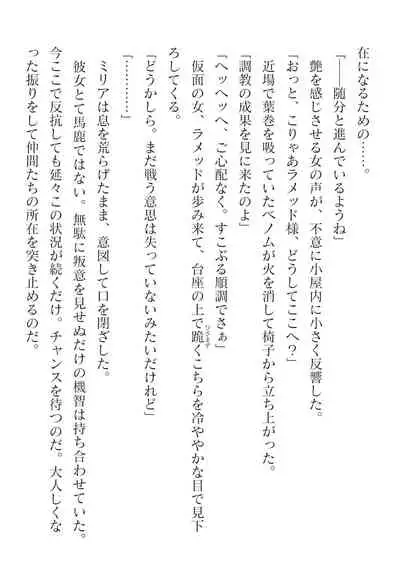 在になるための……。
「――随分と進んでいるようね」
艶を感じさせる女の声が、不意に小屋内に小さく反響した。
「おっと、こりゃあラメッド様、どうしてここへ?」
近場で葉巻を吸っていたベノムが火を消して椅子から立ち上がった。
「調教の成果を見に来たのよ」
「ヘッヘッヘ、ご心配なく。すこぶる順調でさぁ」
仮面の女、ラメッドが歩み来て、台座の上で跪くこちらを冷ややかな目で見下
ひざまず
ろしてくる。
「どうかしら。まだ戦う意思は失っていないみたいだけれど」
「…………」
ミリアは息を荒らげたまま、意図して口を閉ざした。
彼女とて馬鹿ではない。無駄に叛意を見せぬだけの機智は持ち合わせていた。
今ここで反抗しても延々この状況が続くだけ。チャンスを待つのだ。大人しくな
った振りをして仲間たちの所在を突き止めるのだ。